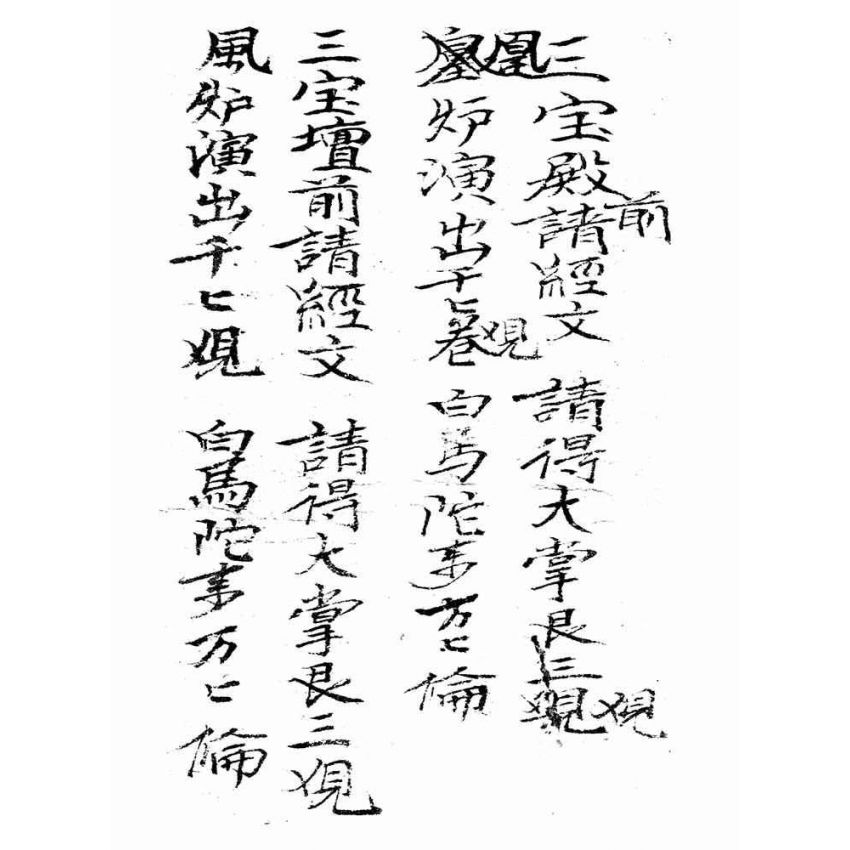 三宝殿前請經文 請得大掌艮三娊
凰炉演出千匕巻娊 白馬陀来万匕倫
三宝壇前請經文 請得大掌艮三娊
風炉演出千匕娊 白馬陀来万匕倫